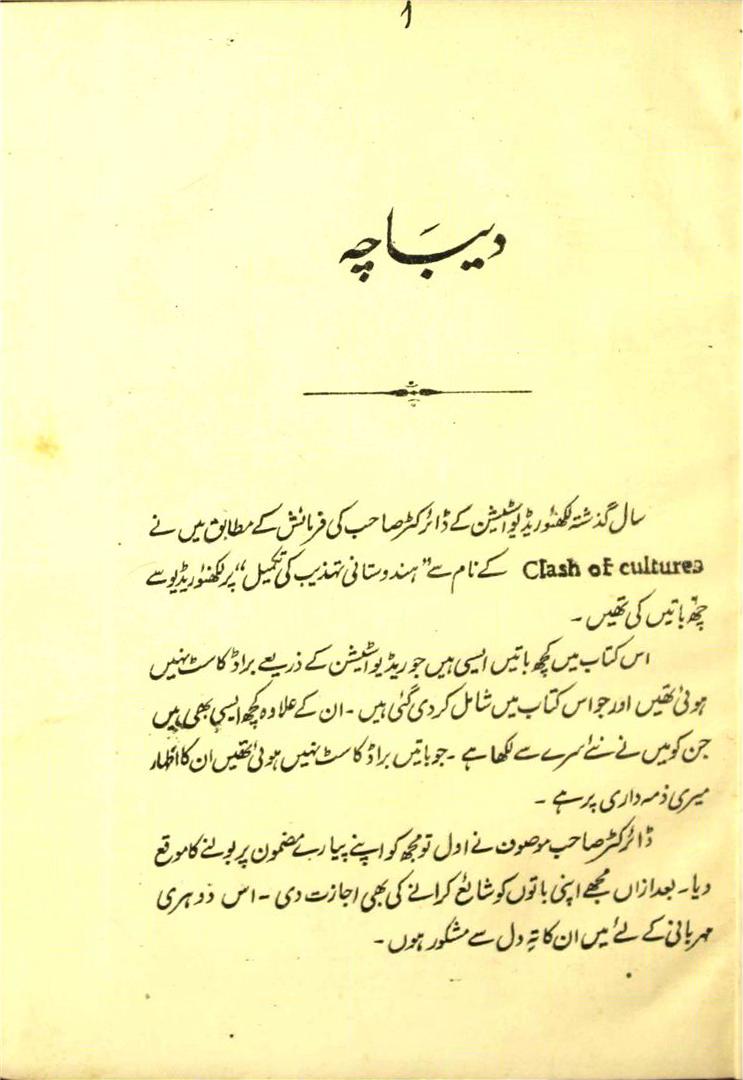 1
دیباچہ
سال گذشتہ لکھنؤ ریڈیو اسٹیشن کے ڈائرکٹر صاحب کی فرمائش کے مطابق میں نے
Clash of cultures کے نام سے "ہندوستانی تہذیب کی تکمیل" پر لکھنؤ ریڈیو سے
چھ باتیں کی تھیں۔
اس کتاب میں کچھ باتیں ایسی ہیں جو ریڈیو اسٹیشن کے ذریعے براڈ کاسٹ نہیں
ہوئی تھیں اور جو اس کتاب میں شامل کر دی گئی ہیں۔ ان کے علاوہ کچھ ایسی بھی ہیں
جن کو میں نے نئے سرے سے لکھا ہے۔ جو باتیں براڈ کاسٹ نہیں ہوئی تھیں ان کا اظہار
میری ذمہ داری پر ہے۔
ڈائرکٹر صاحب موصوف نے اول تو مجھ کو اپنے پیارے مضمون پر بولنے کا موقع
دیا۔ بعد ازاں مجھے اپنی باتوں کو شائع کرانے کی بھی اجازت دی۔ اس دوہری
مہربانی کے لئے میں ان کا تہِ دل سے مشکور ہوں۔